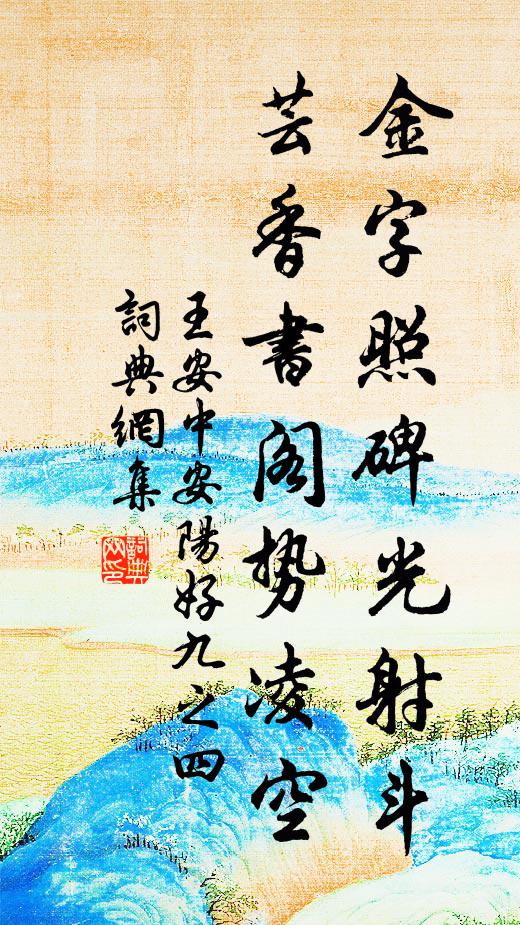 金字照碑光射斗
芸香書阁势凌空
王安中安陽好九之四
詞典網集
詞典网印